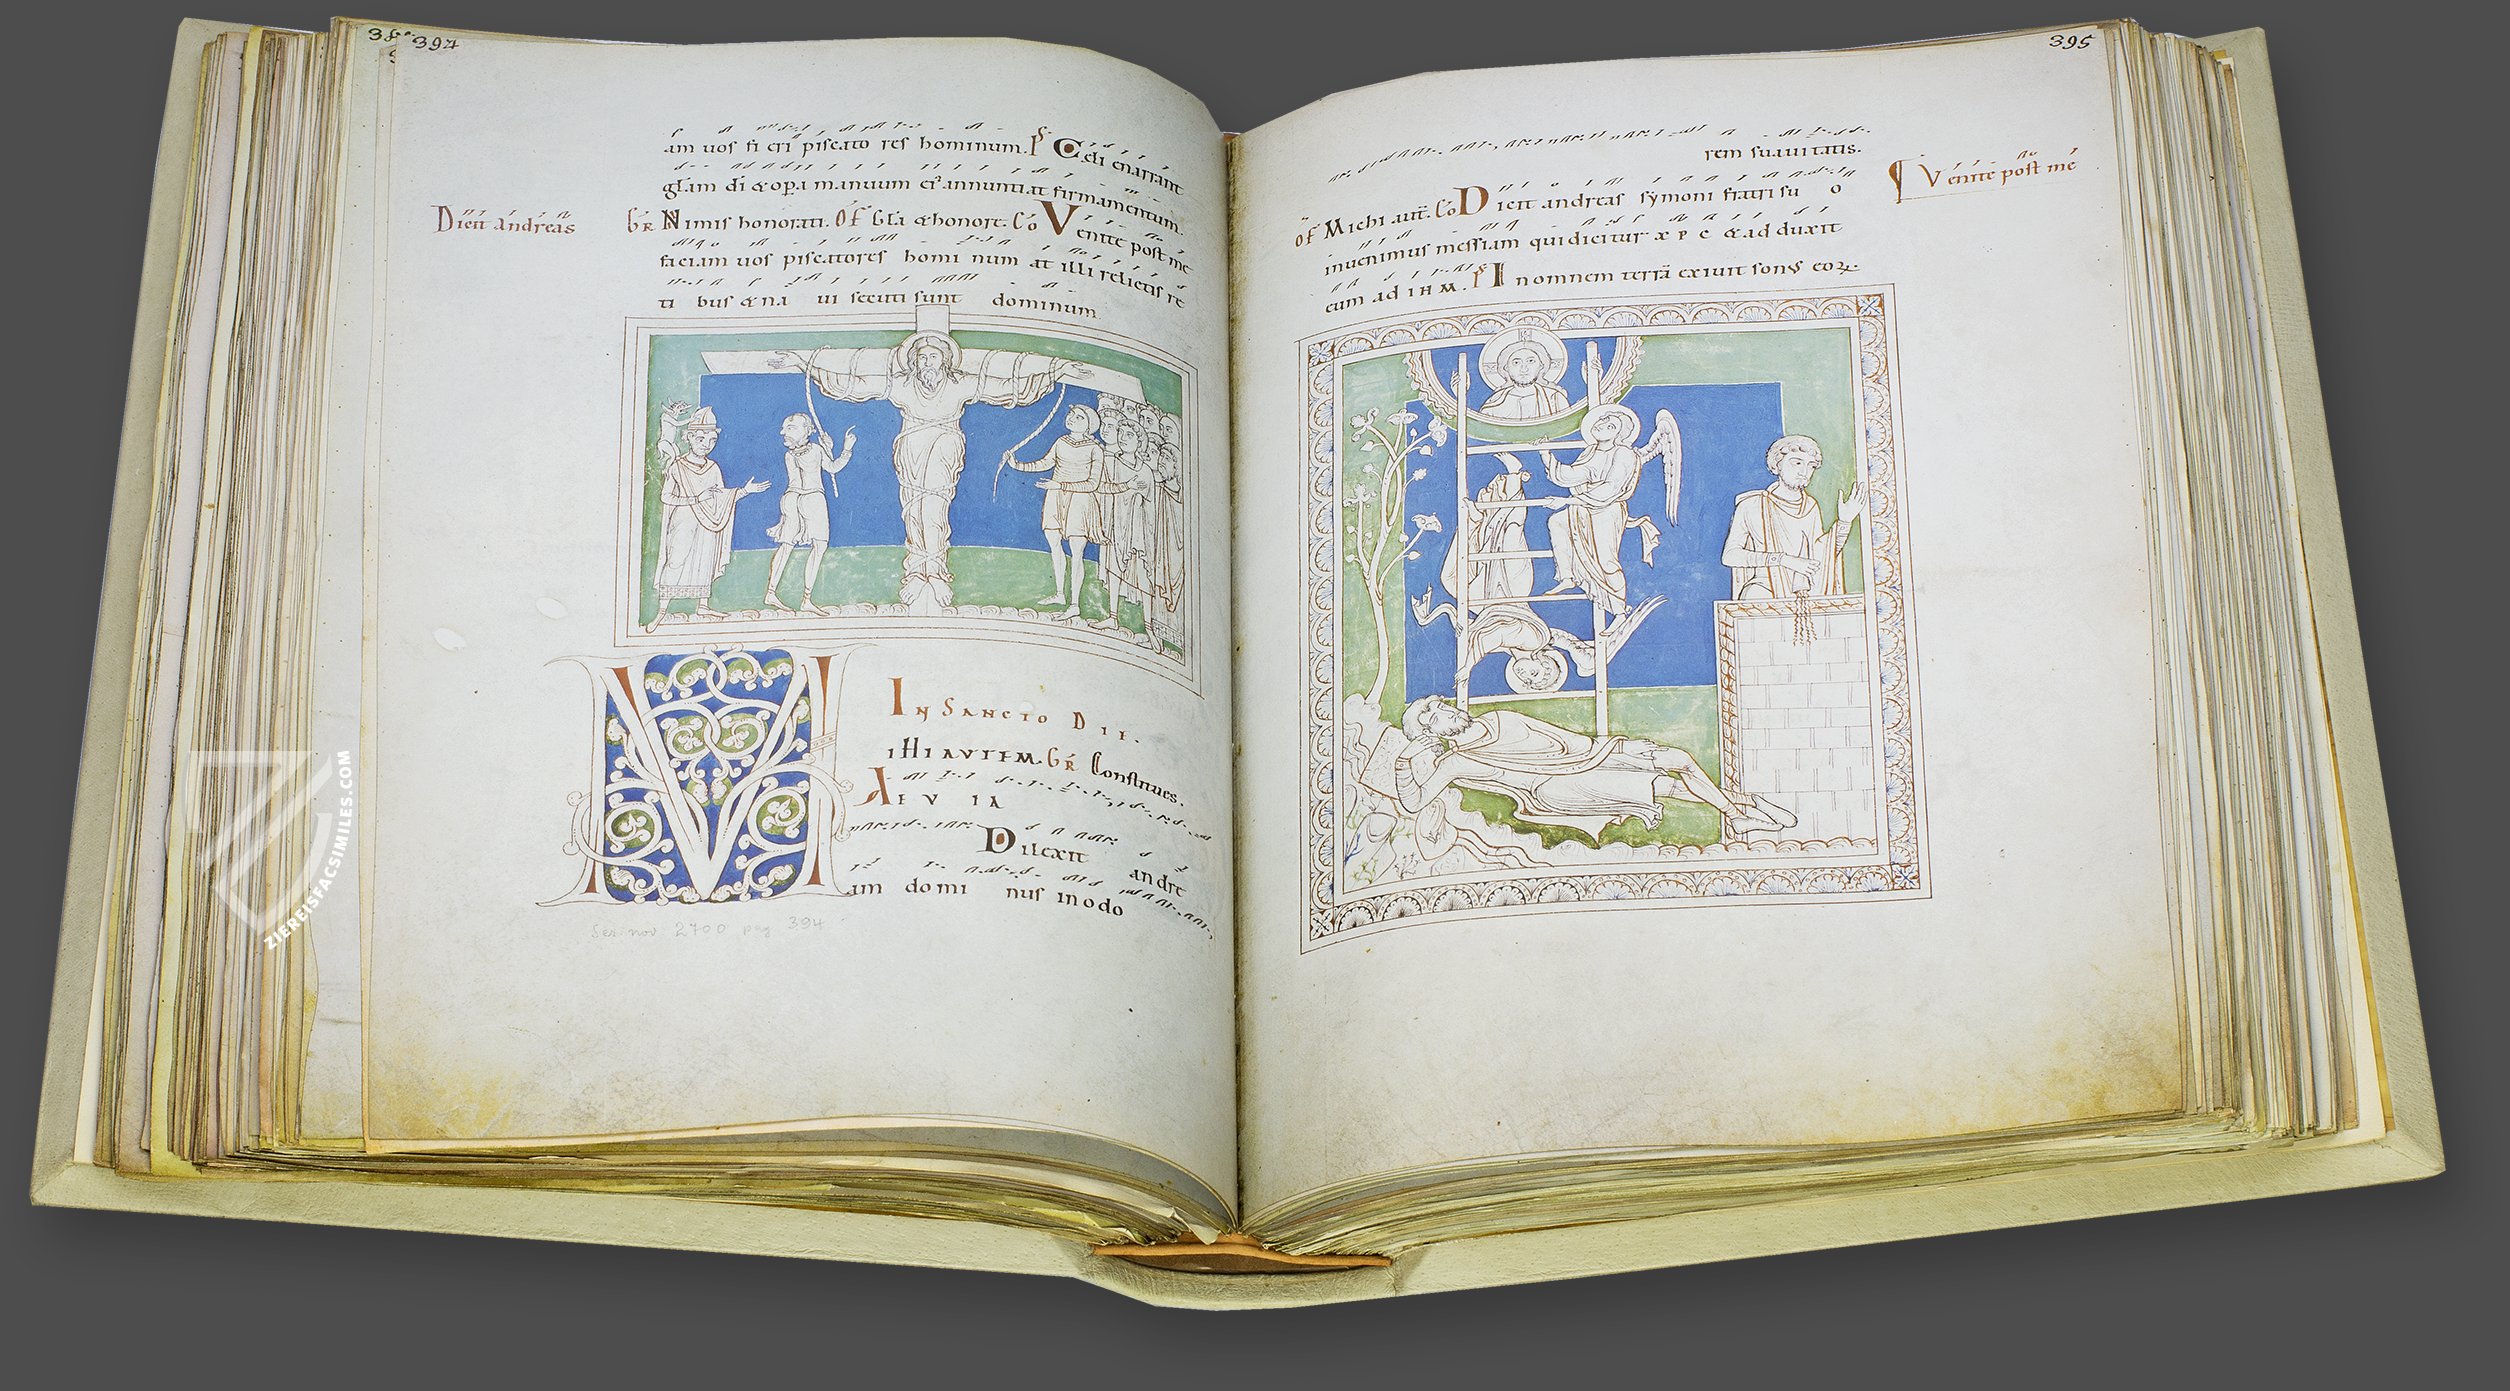 394
am uos fi eri piscato res hominum. Ps Celi enarrant
gl̄am di & op̄a manuum ei' annuntiat firmamentum.
Dicit andreas
GR Nimis honorati. OF Gl̄a & honore. Co Venite post me
faciam uos piscatores homi num at illi relictis re
ti bus & na ui secuti sunt dominum.
IN SANCTO DIE.
MIHI AVTEM. GR Constitues.
AEVIA
Dilexit andre
am domi nus inodo
Ser. nov. 2700 pag 394
395
rem suauitatis.
Venite post me
OF Michi aut̄. Co Dicit andreas symoni fratri su o
inuenimus messiam qui dicitur x p c & ad duxit
eum ad IHM. Ps In omnem terrā exiuit sonus eoꝝ
ZIEREISFACSIMILES.COM